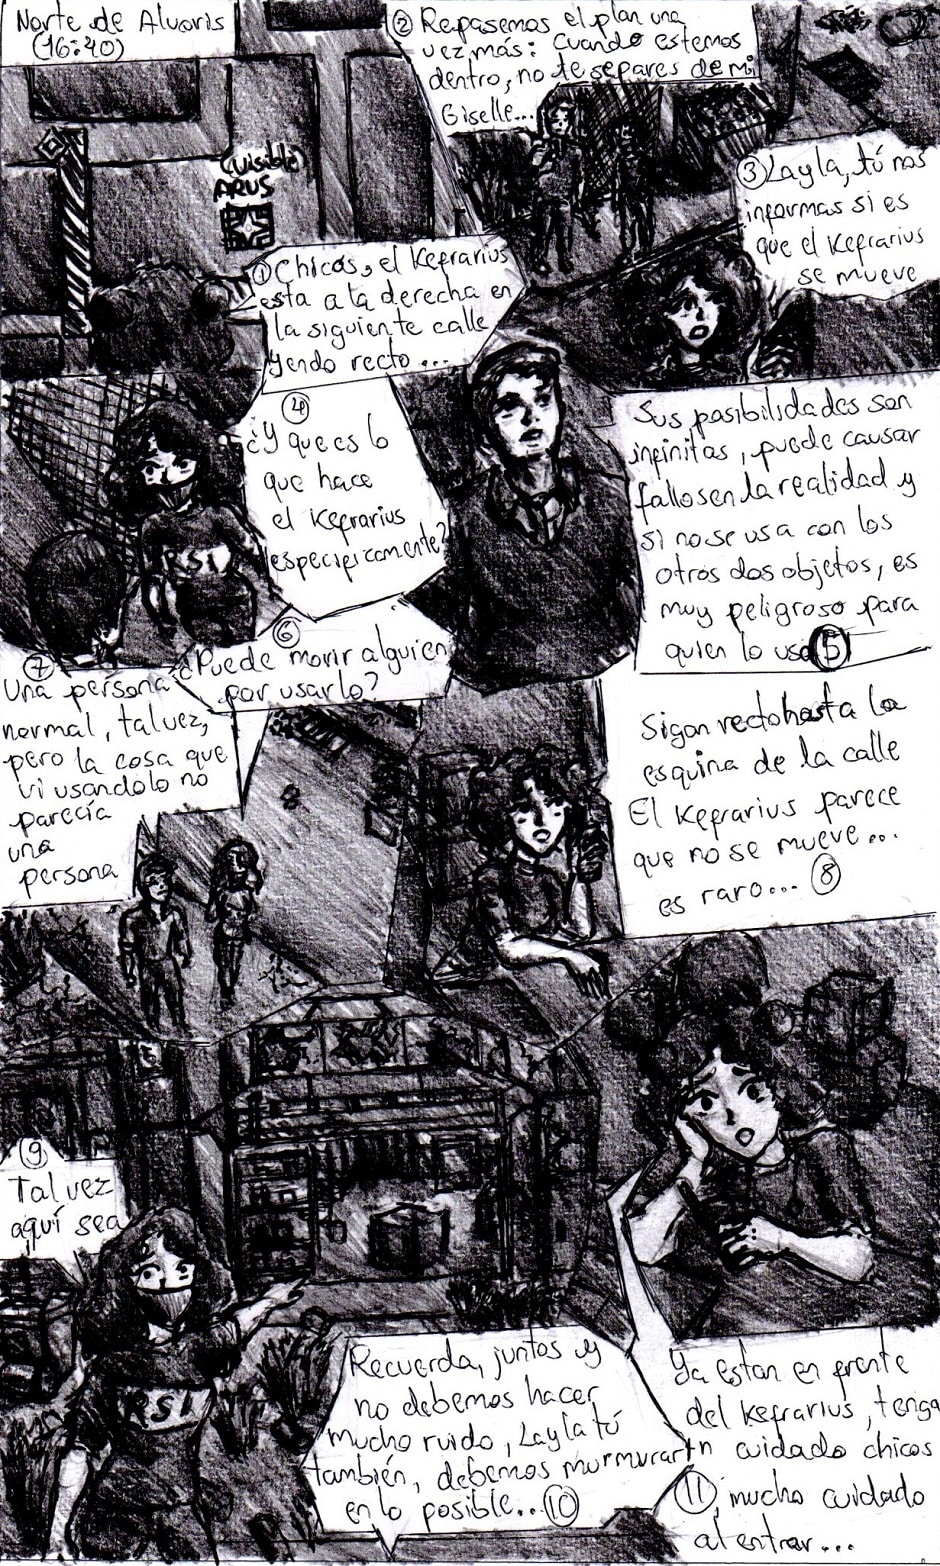 Norte de Alvaris
(16:40)
(Visible)
ARUS
① Chicos, el Kefrarius
esta a la derecha en
la siguiente calle
yendo recto...
② Repasemos el plan una
vez más: Cuando estemos
dentro, no te separes de mi
Giselle...
③ Layla, tú nos
informas si es
que el Kefrarius
se mueve
④
¿Y que es lo
que hace
el Kefrarius
especificamente?
RSI
Sus posibilidades son
infinitas, puede causar
fallos en la realidad y
si no se usa con los
otros dos objetos, es
muy peligroso para
quien lo usa ⑤
⑥
¿Puede morir alguien
por usarlo?
⑦
Una persona
normal, tal vez,
pero la cosa que
vi usandolo no
parecía
una
persona
Sigan recto hasta la
esquina de la calle
El Kefrarius parece
que no se mueve...
es raro... ⑧
⑨
Tal vez
aquí sea
RSI
Recuerda, juntos y
no debemos hacer
mucho ruido, Layla tú
también, debemos murmurar
en lo posible... ⑩
Ya estan en frente
del Kefrarius, tenga
n cuidado chicos
⑪, mucho cuidado
al entrar...